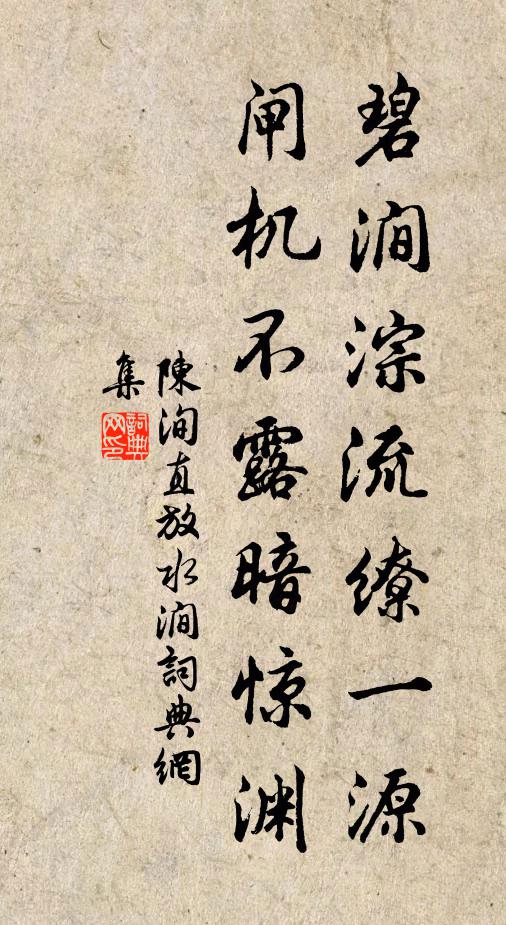 碧涧淙流缭一源
闸机不露暗惊渊
陳洵直放水涧詞典網
集
詞典
网印